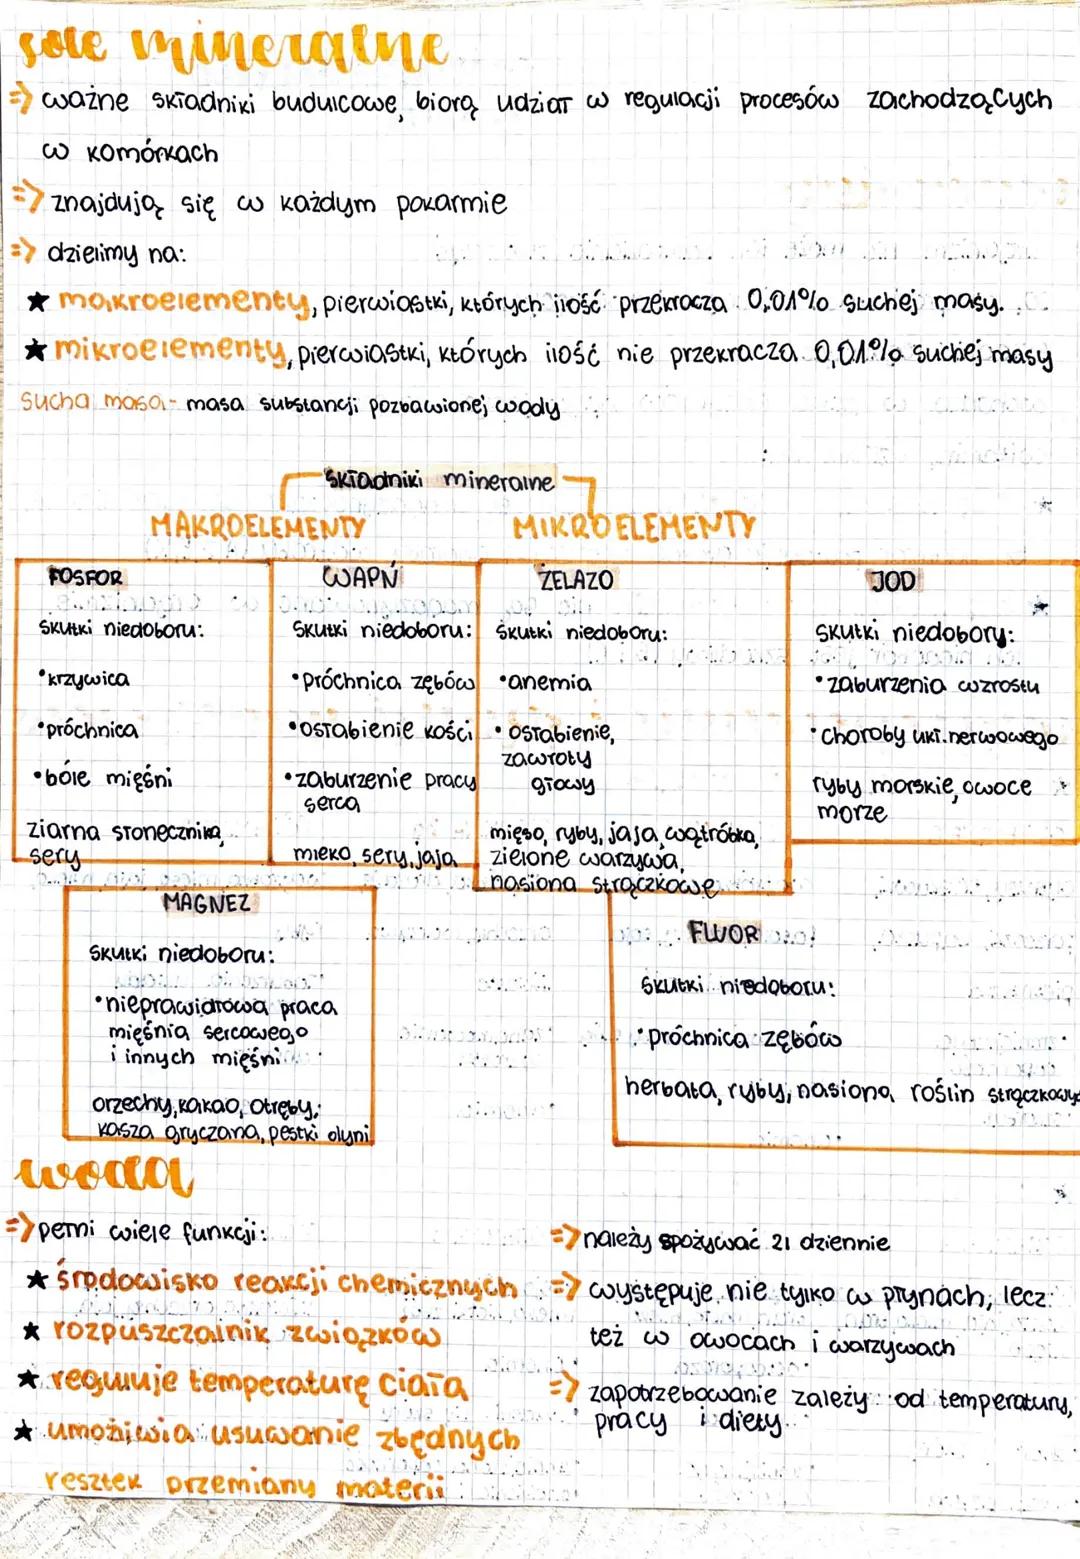 sole mineralne
=> ważne składniki budulcowe, biorą udział w regulacji procesów zachodzących
w komórkach
=> znajdują się w każdym pokarmie
=> dzielimy na:
★ makroelementy, pierwiastki, których ilość przekracza 0,01% suchej masy.
★ mikroelementy, pierwiastki, których ilość nie przekracza 0,01% suchej masy
sucha masa - masa substancji pozbawionej wody
składniki mineralne
MAKROELEMENTY
MIKROELEMENTY
FOSFOR
skutki niedoboru:
•krzywica
•próchnica
•bóle mięśni
ziarna słonecznika,
sery
WAPŃ
skutki niedoboru:
•próchnica zębów
•osłabienie kości
•zaburzenie pracy
serca
mleko, sery, jaja
ŻELAZO
skutki niedoboru:
•anemia
•osłabienie,
zawroty
głowy
mięso, ryby, jaja, wątróbka,
zielone warzywa,
nasiona strączkowe
JOD
skutki niedobory:
•zaburzenia wzrostu
•choroby ukł. nerwowego
ryby morskie, owoce
morze
MAGNEZ
skutki niedoboru:
•nieprawidłowa praca
mięśnia sercowego
i innych mięśni
orzechy, kakao, otręby,
kasza gryczana, pestki dyni
FLUOR
skutki niedoboru:
•próchnica zębów
herbata, ryby, nasiona roślin
woda
=> pełni wiele funkcji:
★ środowisko reakcji chemicznych
★ rozpuszczalnik związków
★ reguluje temperaturę ciała
★ umożliwia usuwanie zbędnych
resztek przemiany materii
=> należy spożywać 2l dziennie
=> występuje nie tylko w płynach, lecz
też w owocach i warzywach
=> zapotrzebowanie zależy od temperatury,
pracy i diety